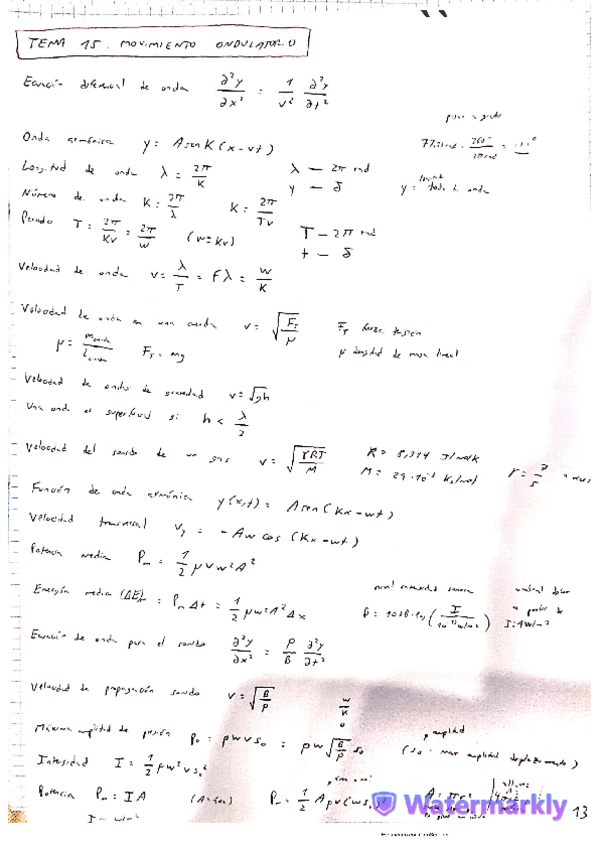 TEMA 15. MOVIMIENTO ONDULATORIO
Ecuación diferencial de onda ∂²y/∂x² = 1/v² ∂²y/∂t²
Onda armónica y = A sen K(x-vt)
Longitud de onda λ = 2π/K λ — 2π rad
y — δ
Número de onda K = 2π/λ K = 2π/Tv
Periodo T = 2π/Kv = 2π/w (w=Kv) T — 2π rad
t — δ
Velocidad de onda v = λ/T = Fλ = w/K
Velocidad de onda en una cuerda v = √(F_T/μ) F_T fuerza tensión
F_T = mg μ densidad de masa lineal
Velocidad de ondas de gravedad v = √gh
Una onda es superficial si h < λ/2
Velocidad del sonido de un gas v = √(γRT/M) R = 8,314 J/molK
M = 29·10⁻³ Kg/mol
Función de onda armónica y(x,t) = A sen(Kx-wt)
Velocidad transversal v_y = -Aw cos(Kx-wt)
Potencia media P_m = 1/2 μvw²A²
Energía media (ΔE)m = P_m Δt = 1/2 μw²A²Δx
nivel intensidad sonora
umbral dolor
a partir de
I=1W/m²
Ecuación de onda para el sonido ∂²y/∂x² = ρ/B ∂²y/∂t²
Velocidad de propagación sonido v = √(B/ρ)
w/K
Máxima amplitud de presión p₀ = ρwvs₀ = ρw√(B/ρ) s₀
amplitud
(s₀ = max amplitud desplazamiento)
Intensidad I = 1/2 ρw²vs₀²
Potencia P_m = IA P_m = 1/2 Aρv(ws₀)²
Watermarkly
13